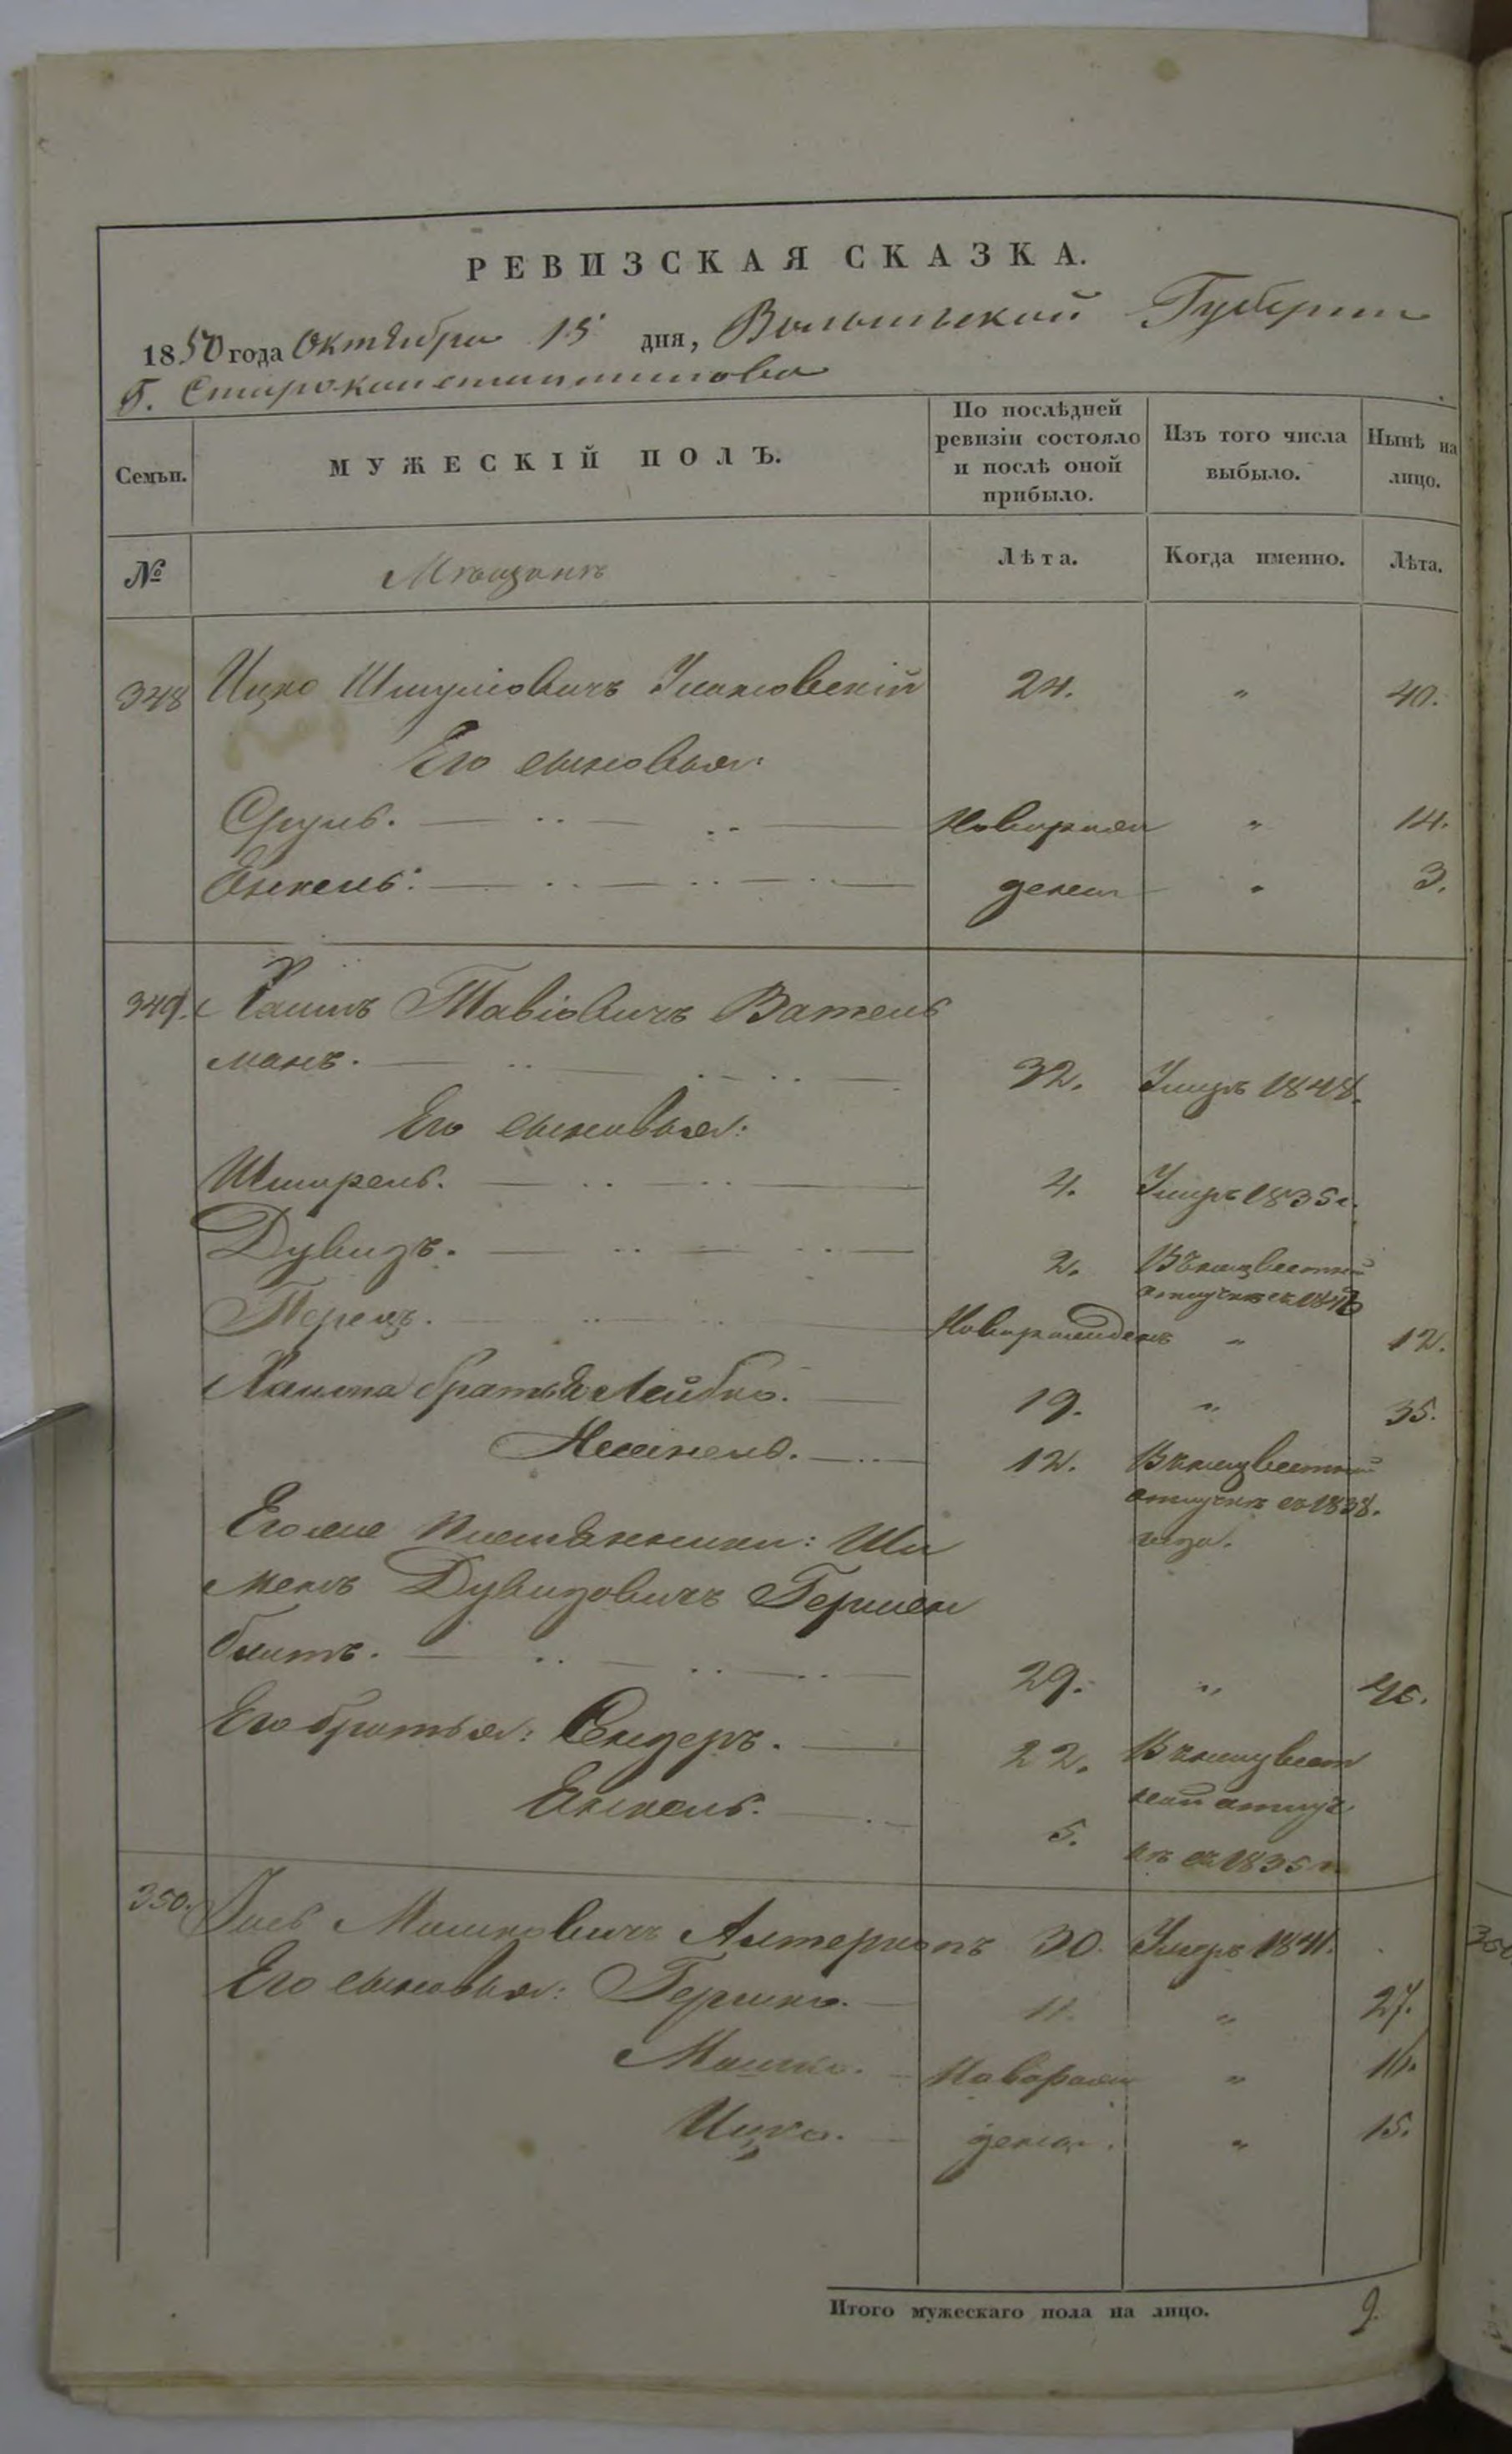 РЕВИЗСКАЯ СКАЗКА.
1850 года Октября 15 дня, Волынской Губернии
Г. Староконстантинова
Семьи. МУЖЕСКІЙ ПОЛЪ. По послѣдней ревизіи состояло и послѣ оной прибыло. Изъ того числа выбыло. Нынѣ на лицо.
№ Мѣщанъ Лѣта. Когда именно. Лѣта.
348 Ицко Шмулiовичъ 24. " 40.
Его сыновья:
Сруль. Новорож " 14.
Янкель: дени " 3.
349. Хаимъ Тавіовичъ Ватель
манъ. 32. Умеръ 1848.
Его сыновья:
Шмерель. 4. Умеръ 1835 г.
Дувидъ. 2. Въ неизвестной
отлучке съ 184
Перецъ. Новорожденъ " 12.
Хаима братья Лейбко. 19. " 35.
12. Въ неизвестной
отлучке съ 1838.
года.
Его же племянники: Ши
менъ Дувидовичъ Гершен
блитъ. 29. "
Его братья: Сендеръ. 22. Въ неизвест
ной отлуч
Янкель. 5. кѣ съ 1835 г.
350. Іось Мошковичъ Альтер 30. Умеръ 1841.
Его сыновья: Гершко. 11. " 27.
Мошко. Новорож " 16.
Ицко. дени. " 15.
Итого мужескаго пола на лицо. 9.